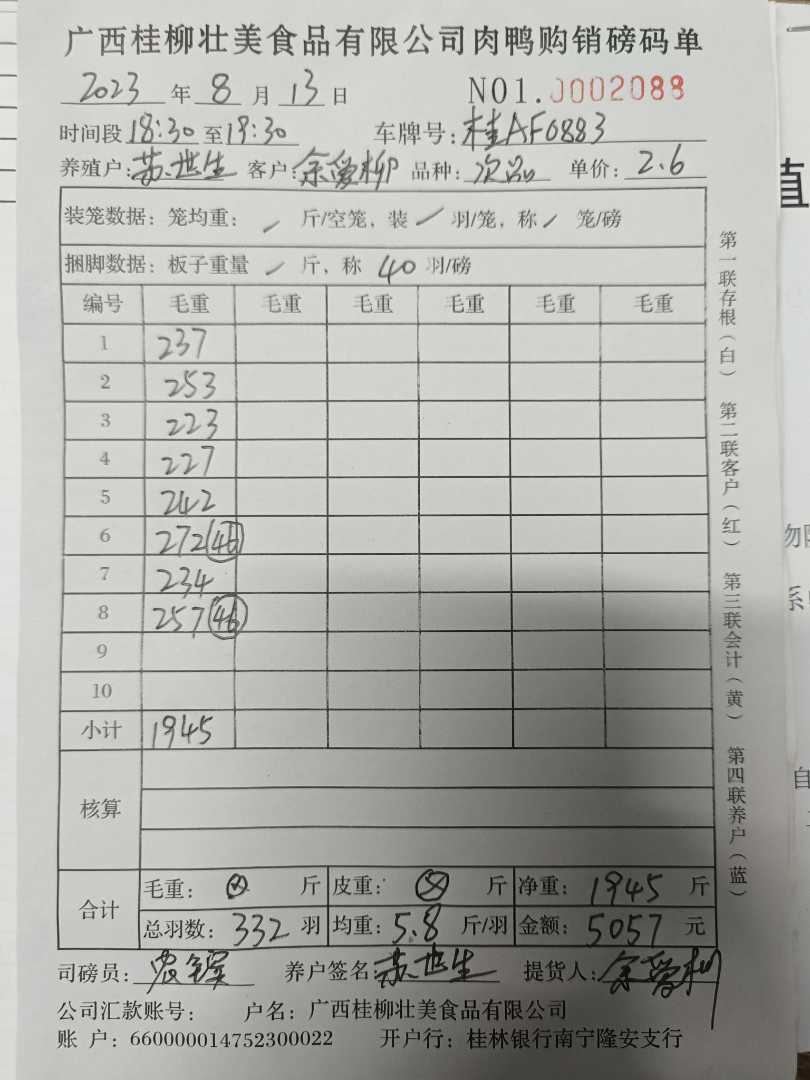 广西桂柳壮美食品有限公司肉鸭购销磅码单
2023 年 8 月 13 日 NO1.0002088
时间段 18:30 至 19:30 车牌号: 桂AF0883
养殖户: 苏世生 客户: 余爱柳 品种: 次品 单价: 2.6
装笼数据: 笼均重: / 斤/空笼, 装 / 羽/笼, 称 / 笼/磅
捆脚数据: 板子重量 / 斤, 称 40 羽/磅
编号 毛重 毛重 毛重 毛重 毛重 毛重
1 237
2 253
3 223
4 227
5 242
6 272 (46)
7 234
8 257 (46)
9
10
小计 1945
核算
合计
毛重: ⊗ 斤 皮重: ⊗ 斤 净重: 1945 斤
总羽数: 332 羽 均重: 5.8 斤/羽 金额: 5057 元
司磅员: 养户签名: 苏世生 提货人: 余爱柳
公司汇款账号: 户名: 广西桂柳壮美食品有限公司
账 户: 660000014752300022 开户行: 桂林银行南宁隆安支行
第一联存根(白) 第二联客户(红) 第三联会计(黄) 第四联养户(蓝)
值
物
系
自